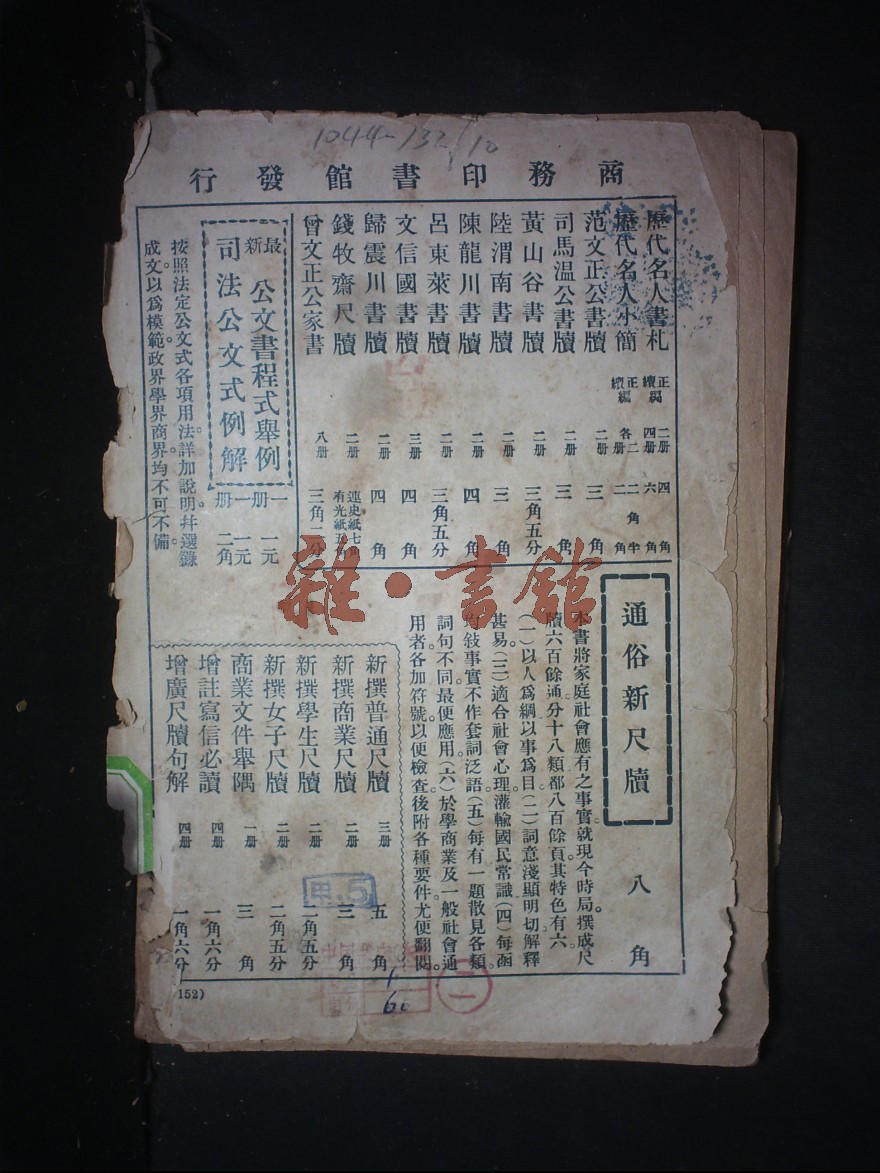 1044-132/10
商務印書館發行
歷代名人書札 正編 二册 四角
續編 四册 六角
歷代名人小簡 正編 續編 各二册 二角半 二角
范文正公書牘 二册 三角
司馬温公書牘 二册 三角
黃山谷書牘 二册 三角五分
陸渭南書牘 二册 三角
陳龍川書牘 二册 四角
呂東萊書牘 二册 三角五分
文信國書牘 三册 四角
歸震川書牘 二册 四角
錢牧齋尺牘 二册 連史紙七角 有光紙五角
曾文正公家書 八册 三角二分
最新 公文書程式舉例 一册 一元
司法公文式例解 一册 一元二角
按照法定公文式各項用法詳加說明幷選錄
成文以爲模範政界學界商界均不可不備
通俗新尺牘 八角
本書將家庭社會應有之事實就現今時局撰成尺
牘六百餘通分十八類都八百餘頁其特色有六
(一)以人爲綱以事爲目(二)詞意淺顯明切解釋
甚易(三)適合社會心理灌輸國民常識(四)每函
均敍事實不作套詞泛語(五)每有一題散見各類
詞句不同最便應用(六)於學商業及一般社會通
用者各加符號以便檢查後附各種要件尤便翻閱
新撰普通尺牘 三册 五角
新撰商業尺牘 二册 三角
新撰學生尺牘 二册 一角五分
新撰女子尺牘 二册 二角五分
商業文件舉隅 一册 三角
增註寫信必讀 四册 一角六分
增廣尺牘句解 四册 一角六分
甲.5
1
60
一
152)
雜·書館